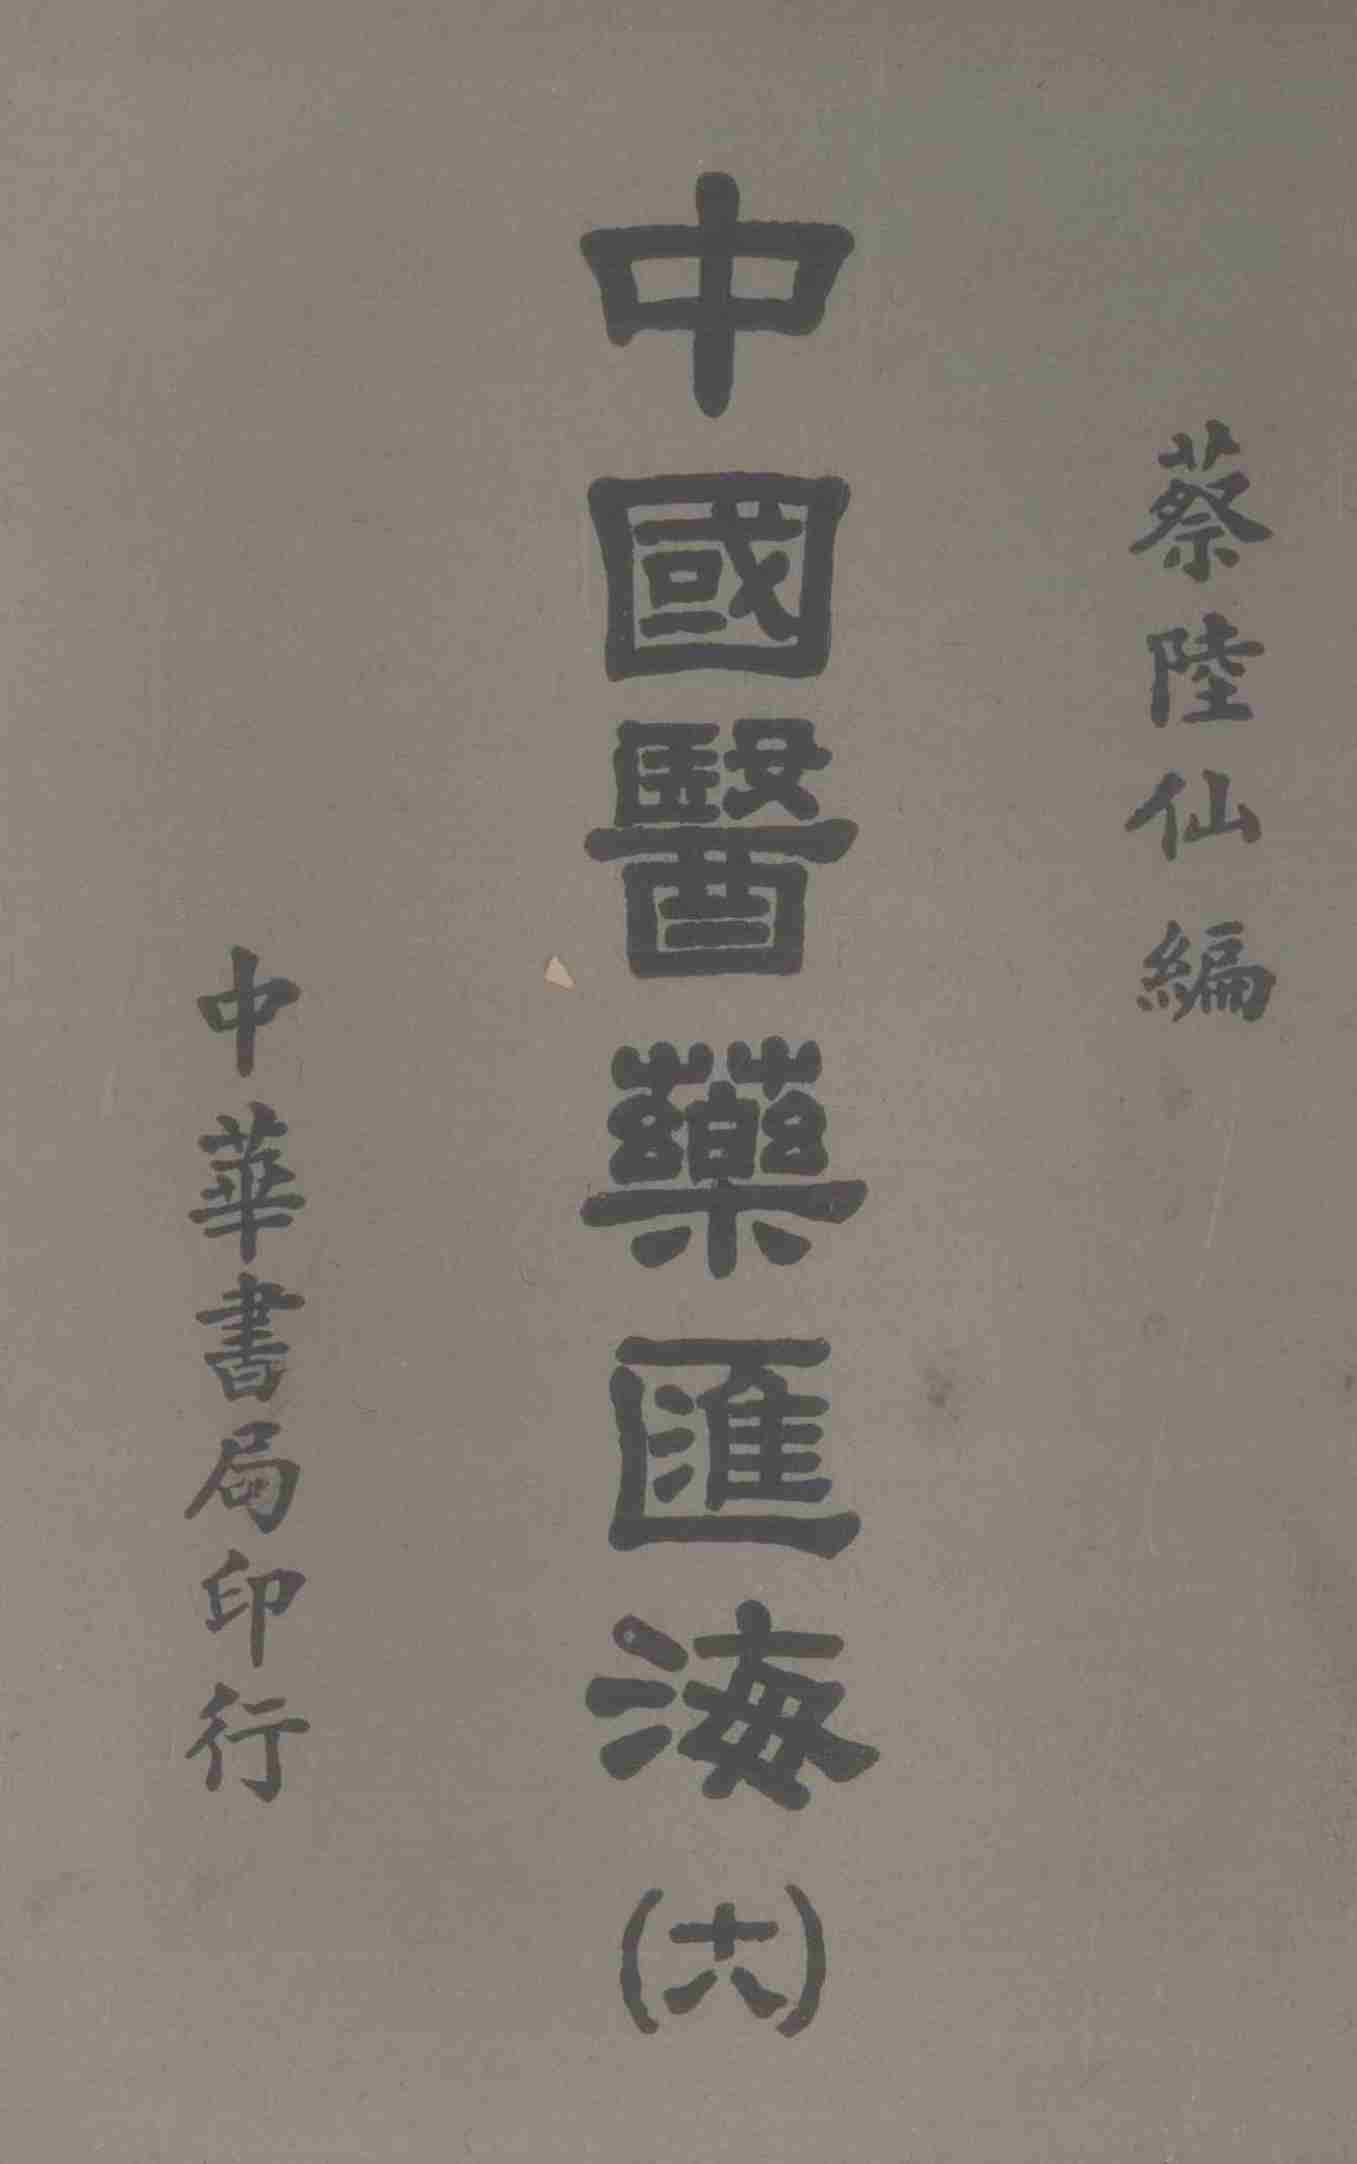 蔡陸仙編
中國醫藥匯海(十八)
中華書局印行